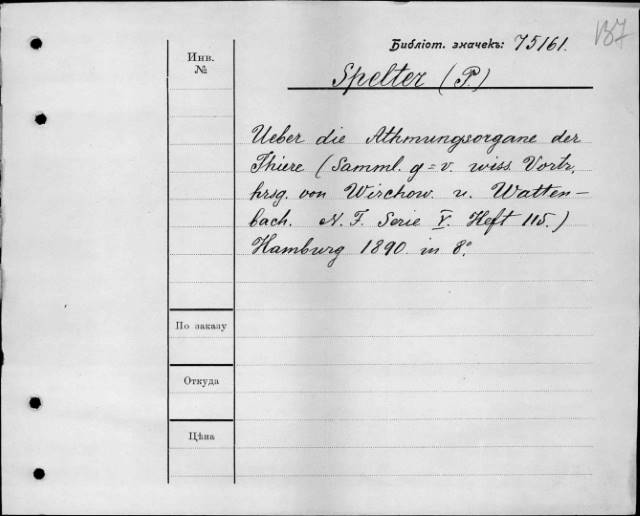 Библіот. значекъ: 75161.
Инв.
№
Spelter (P.)
Ueber die Athmungsorgane der
Thiere (Samml. g=v. wiss. Vortr.
hrsg. von Wirchow. u. Watten-
bach. N. F. Serie V. Heft 115.)
Hamburg 1890. in 8°.
По заказу
Откуда
Цѣна